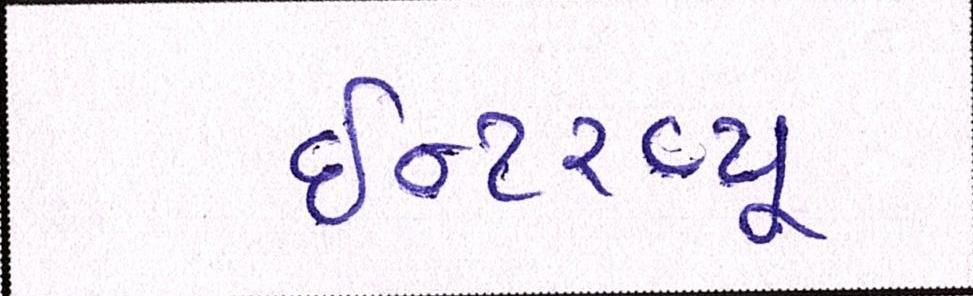 ઈન્ટરવ્યૂ